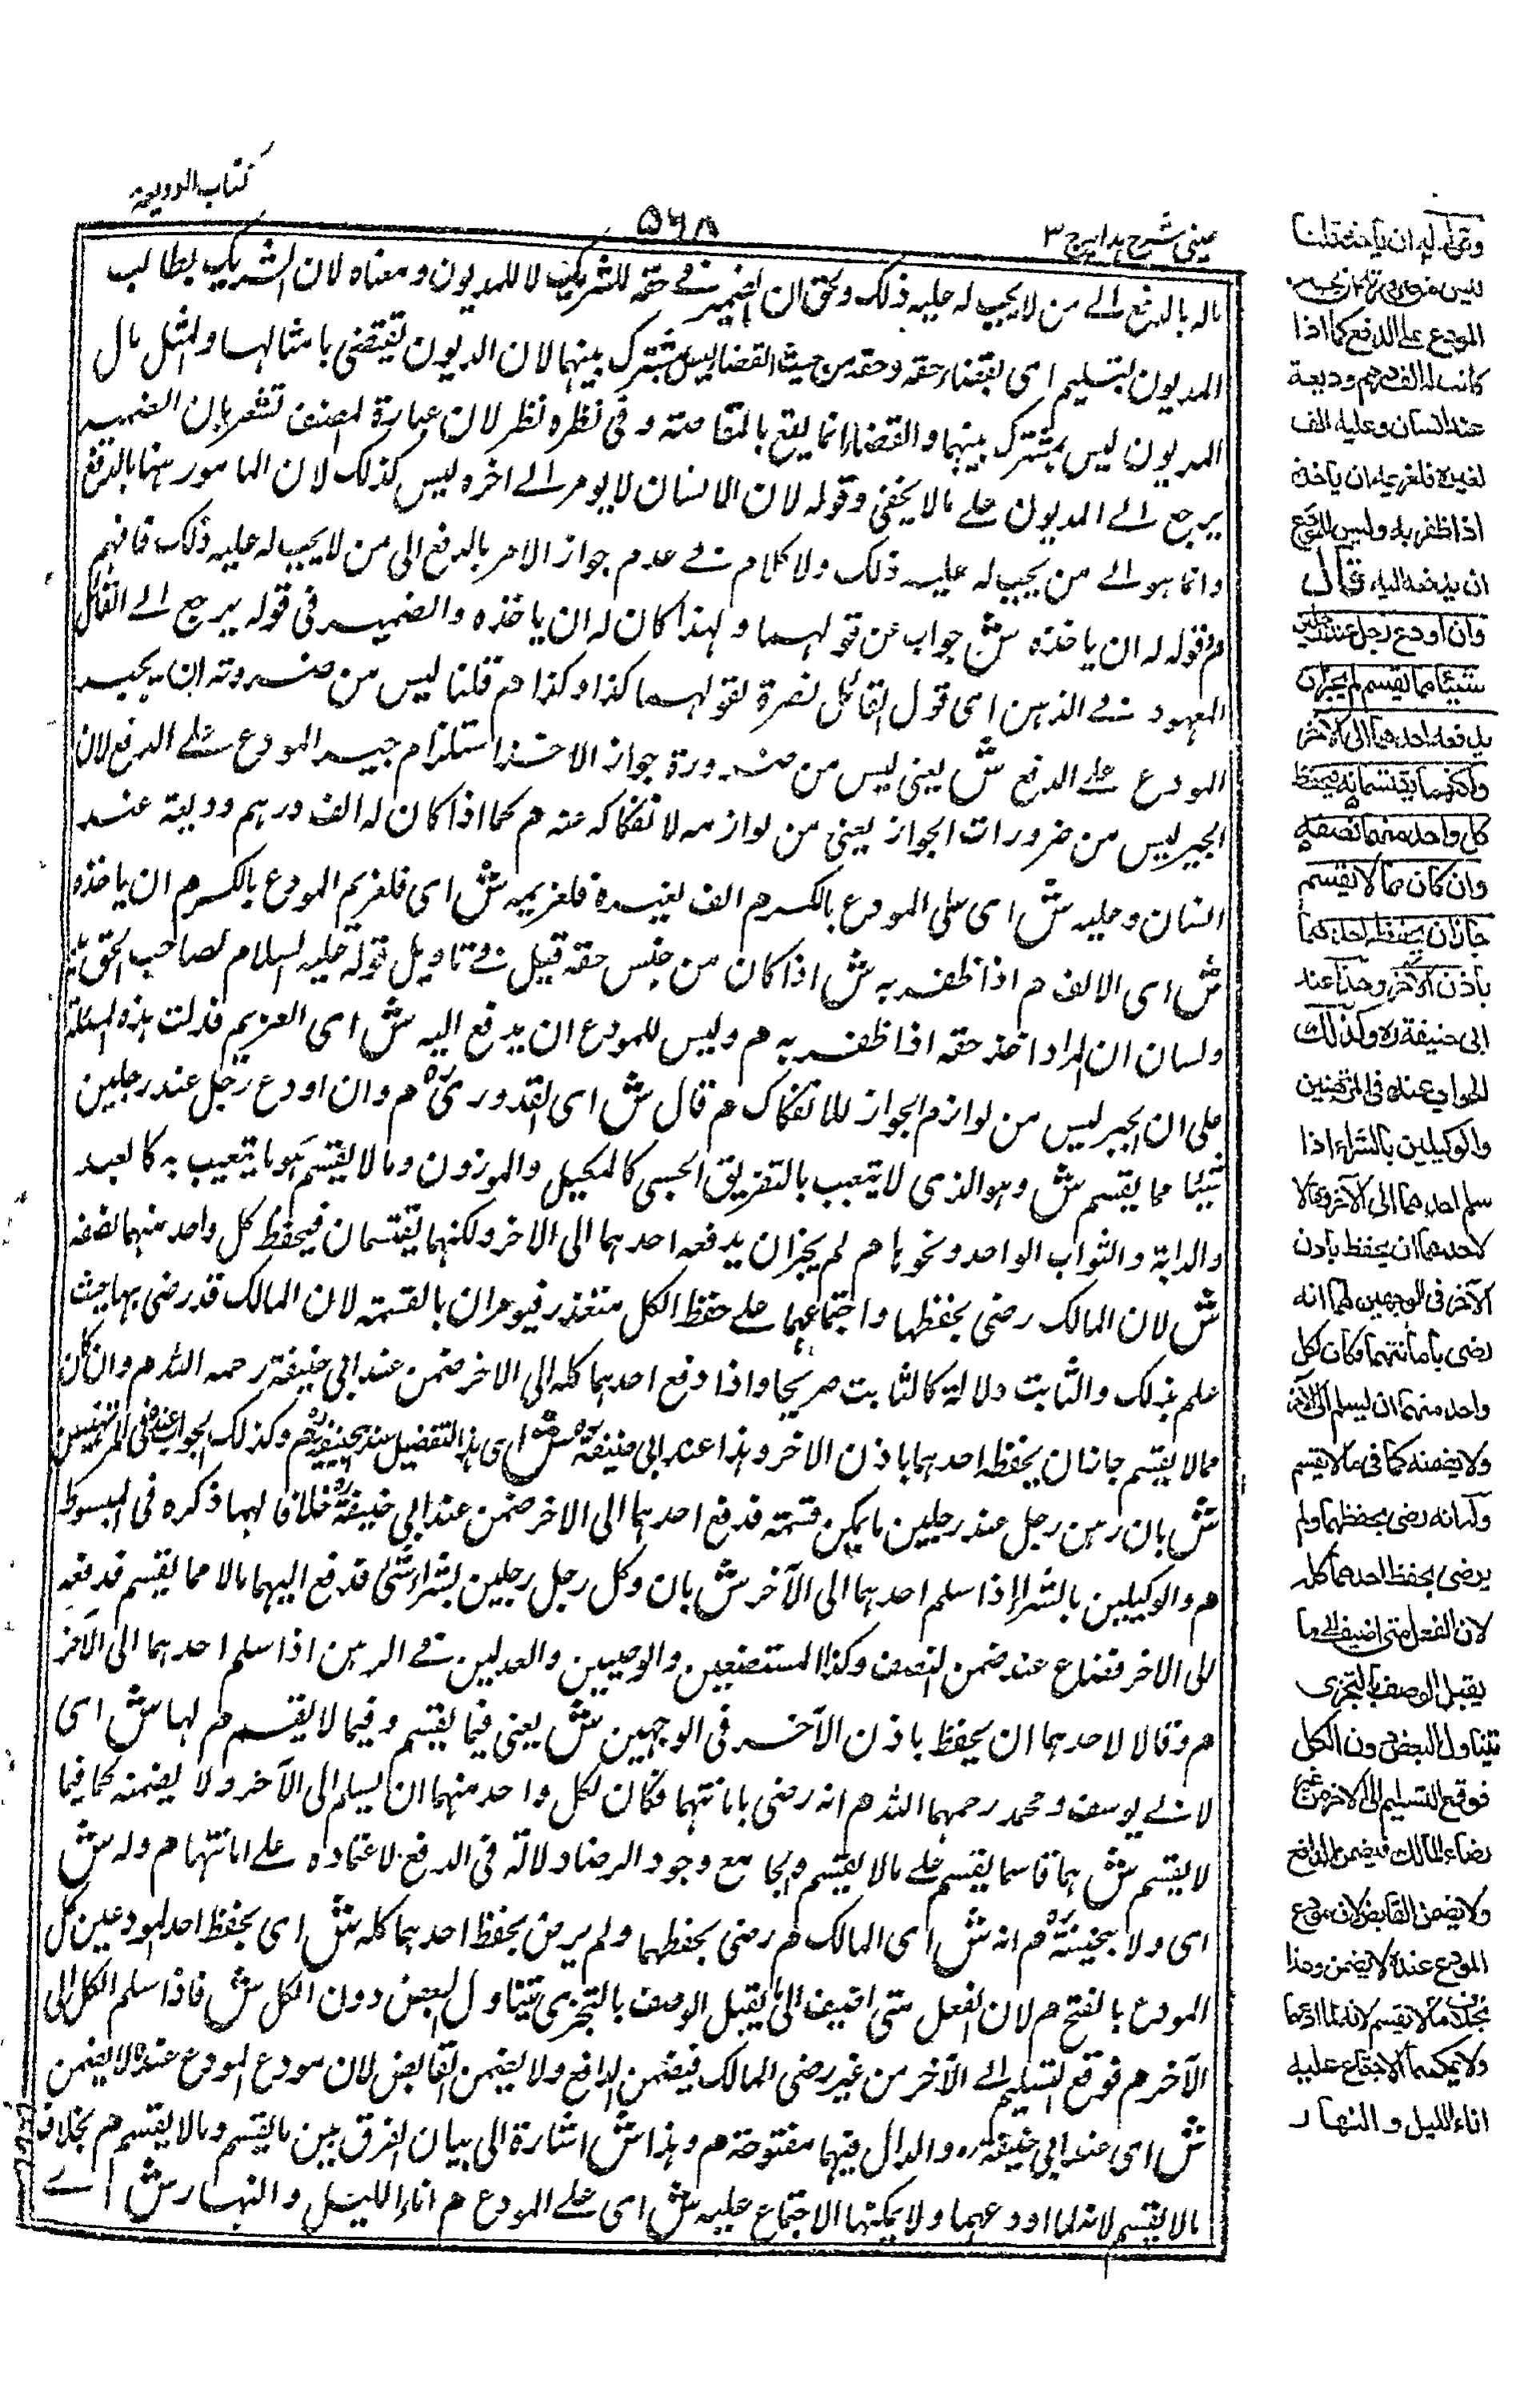 كتاب الوديعة
٥٦٨
عينى شرح هداية ج ٣
ماله بالدفع الے من لا يجب له عليه ذلك والحق ان الضمير فے حقه للشريك لا للمديون ومعناه لان الشريك يطالب
المديون بتسليم اى بقضاء حقه وحقه من حيث القضاء ليس بمشترك بينهما لان الديون تقتضى بامثالها والمثل مال
المديون ليس بمشترك بينهما والقضاء انما يقع بالمقاصة وفى نظره نظر لان عبارة المصنف تشعر بان الضمير
يرجع الے المديون علے مالا يخفى وقوله لان الانسان لا يومر الے اخره ليس كذلك لان المامور هنا بالدفع
وانما هو الے من يجب له عليه ذلك ولا كلام فے عدم جواز الامر بالدفع الى من لا يجب له عليه ذلك فافهم
م وقوله له ان ياخذه ش جواب عن قولهما ولهذا كان له ان ياخذه والضمير فى قوله يرجع الے القائل
المعهود فے الذهن اى قول القائل نصرة لقولهما كذا وكذا م قلنا ليس من ضرورته ان يجبر
المودع علے الدفع ش يعنى ليس من ضرورة جواز الاخذ استلزام جبر المودع علے الدفع لان
الجبر ليس من ضرورات الجواز يعنى من لوازمه لانفكاكه عنه م كما اذا كان له الف درهم وديعة عند
انسان وعليه ش اى على المودع بالكسر م الف لغيره فلغريمه ش اى فلغريم المودع بالكسر م ان ياخذه
ش اى الالف م اذا ظفر به ش اذا كان من جنس حقه قيل فے تاويل قوله عليه السلام لصاحب الحق يد
ولسان ان المراد اخذ حقه اذا ظفر به م وليس للمودع ان يدفع اليه ش اى الغريم فدلت هذه المسئلة
على ان الجبر ليس من لوازم الجواز للانفكاك م قال ش اى القدورى م وان اودع رجل عند رجلين
شيئا مما يقسم ش وهو الذى لا يتعيب بالتفريق الحسى كالمكيل والموزون ومالا يقسم هو ما يتعيب به كالعبد
والدابة والثواب الواحد ونحوها م لم يجز ان يدفعه احدهما الى الاخر ولكنهما يقتسمان فيحفظ كل واحد منهما نصفه
ش لان المالك رضى بحفظهما واجتماعهما علے حفظ الكل متعذر فيومران بالقسمة لان المالك قد رضى بها حيث
علم بذلك والثابت دلالة كالثابت صريحا واذا دفع احدهما كله الى الاخر ضمن عند ابى حنيفة رحمه الله م وان كان
ممالا يقسم جاز ان يحفظه احدهما باذن الاخر وهذا عند ابى حنيفة ش اى هذا التفصيل عند ابى حنيفة م وكذلك الجواب عنده فى المرتهنين
ش بان رهن رجل عند رجلين ما يمكن قسمته فدفع احدهما الى الاخر ضمن عند ابى حنيفة خلافا لهما ذكره فى المبسوط
م والوكيلين بالشراء اذا سلم احدهما الى الآخر ش بان وكل رجل رجلين بشراء شئ فدفع اليهما مالا مما يقسم فدفعه
الى الاخر فضاع عنده ضمن النصف وكذا المستبضعين والوصيين والعدلين فے الرهن اذا سلم احدهما الى الآخر
م وقالا لاحدهما ان يحفظ باذن الآخر فى الوجهين ش يعنى فيما يقسم وفيما لا يقسم م لهما ش اى
لابے يوسف ومحمد رحمهما الله م انه رضى بامانتهما فكان لكل واحد منهما ان يسلم الى الآخر ولا يضمنه كما فيما
لا يقسم ش هما قاسا ما يقسم علے مالا يقسم والجامع وجود الرضا دلالة فى الدفع لاعتماده علے امانتهما م وله ش
اى ولابى حنيفة م انه ش اى المالك م رضى بحفظهما ولم يرض بحفظ احدهما كله ش اى بحفظ احد المودعين كل
المودع بالفتح م لان الفعل متى اضيف الى ما يقبل الوصف بالتجزى يتناول البعض دون الكل ش فاذا سلم الكل الى
الآخر م فوقع التسليم الے الآخر من غير رضى المالك فيضمن الدافع ولا يضمن القابض لان مودع المودع عنده لا يضمن
ش اى عند ابى حنيفة والدال فيهما مفتوحة م وهذا ش اشارة الى بيان الفرق بين ما يقسم ومالا يقسم م بخلاف
مالا يقسم لانه لما اودعهما ولا يمكنهما الاجتماع عليه ش اى علے المودع م اناء الليل والنهار ش اے
وقوله له ان ياخذه قلنا
ليس من ضرورته ان يجبر
المودع على الدفع كما اذا
كانت له الف درهم وديعة
عند انسان وعليه الف
لغيره فلغريمه ان ياخذه
اذا ظفر به وليس للمودع
ان يدفعه اليه قال
وان اودع رجل عند رجلين
شيئا مما يقسم لم يجز ان
يدفعه احدهما الى الآخر
ولكنهما يقتسمانه فيحفظ
كل واحد منهما نصفه
وان كان مما لا يقسم
جاز ان يحفظه احدهما
باذن الآخر وهذا عند
ابى حنيفة ره وكذلك
الجواب عنده فى المرتهنين
والوكيلين بالشراء اذا
سلم احدهما الى الآخر وقالا
لاحدهما ان يحفظ باذن
الآخر فى الوجهين لهما انه
رضى بامانتهما فكان لكل
واحد منهما ان يسلم الى الآخر
ولا يضمنه كما فى ما لا يقسم
وله انه رضى بحفظهما ولم
يرضى بحفظ احدهما كله
لان الفعل متى اضيف الى ما
يقبل الوصف بالتجزى
يتناول البعض دون الكل
فوقع التسليم الى الآخر من غير
رضاء المالك فيضمن الدافع
ولا يضمن القابض لان مودع
المودع عنده لا يضمن وهذا
بخلاف ما لا يقسم لانه لما اودعهما
ولا يمكنهما الاجتماع عليه
اناء الليل والنهار